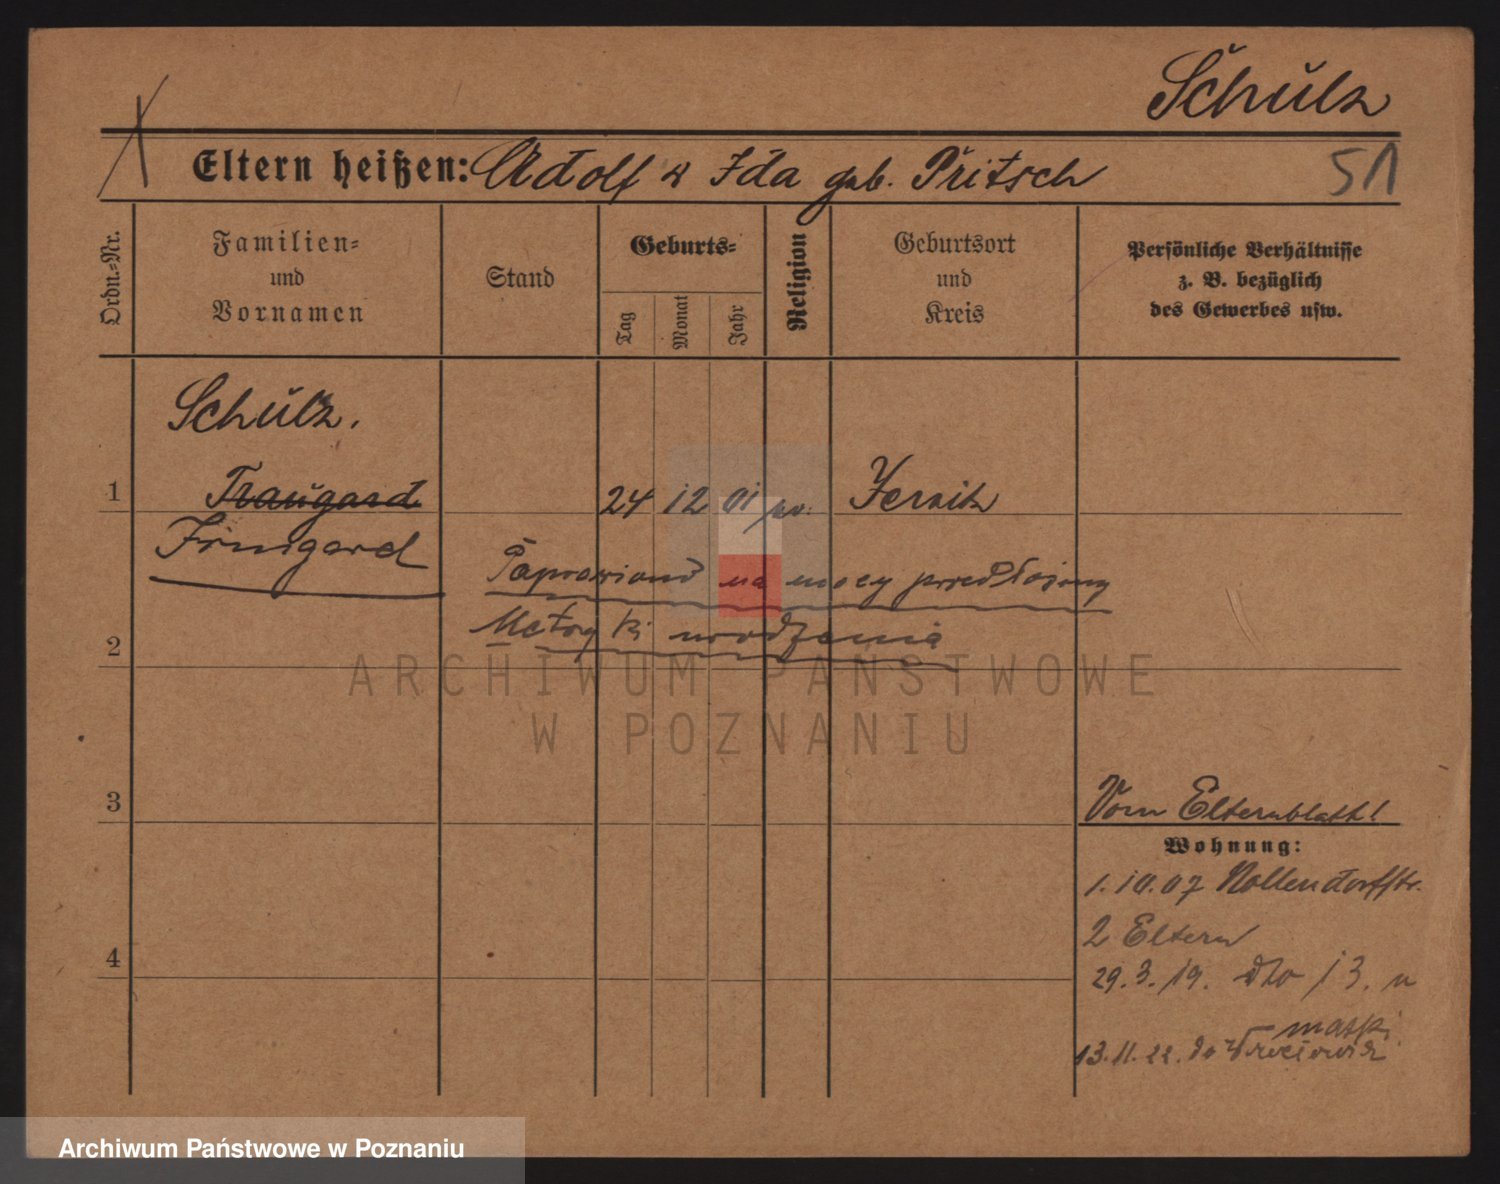 Schulz
Eltern heißen: Adolf u Ida geb. Pritsch
51
Ordn.-Nr.
Familien-
und
Vornamen
Stand
Geburts-
Tag
Monat
Jahr
Religion
Geburtsort
und
Kreis
Persönliche Verhältnisse
z. B. bezüglich
des Gewerbes usw.
Schulz.
1 Traugard 24 12 01 Jersitz
Irmgard
Poprawiono na mocy przedłożonej
Metryki urodzenia
2
ARCHIWUM PAŃSTWOWE
W POZNANIU
3
Vom Elternblatt!
Wohnung:
1.10.07 Nollendorffstr.
2 Eltern
4
29.3.19. dto 13. u
matki
13.11.22. do
Archiwum Państwowe w Poznaniu